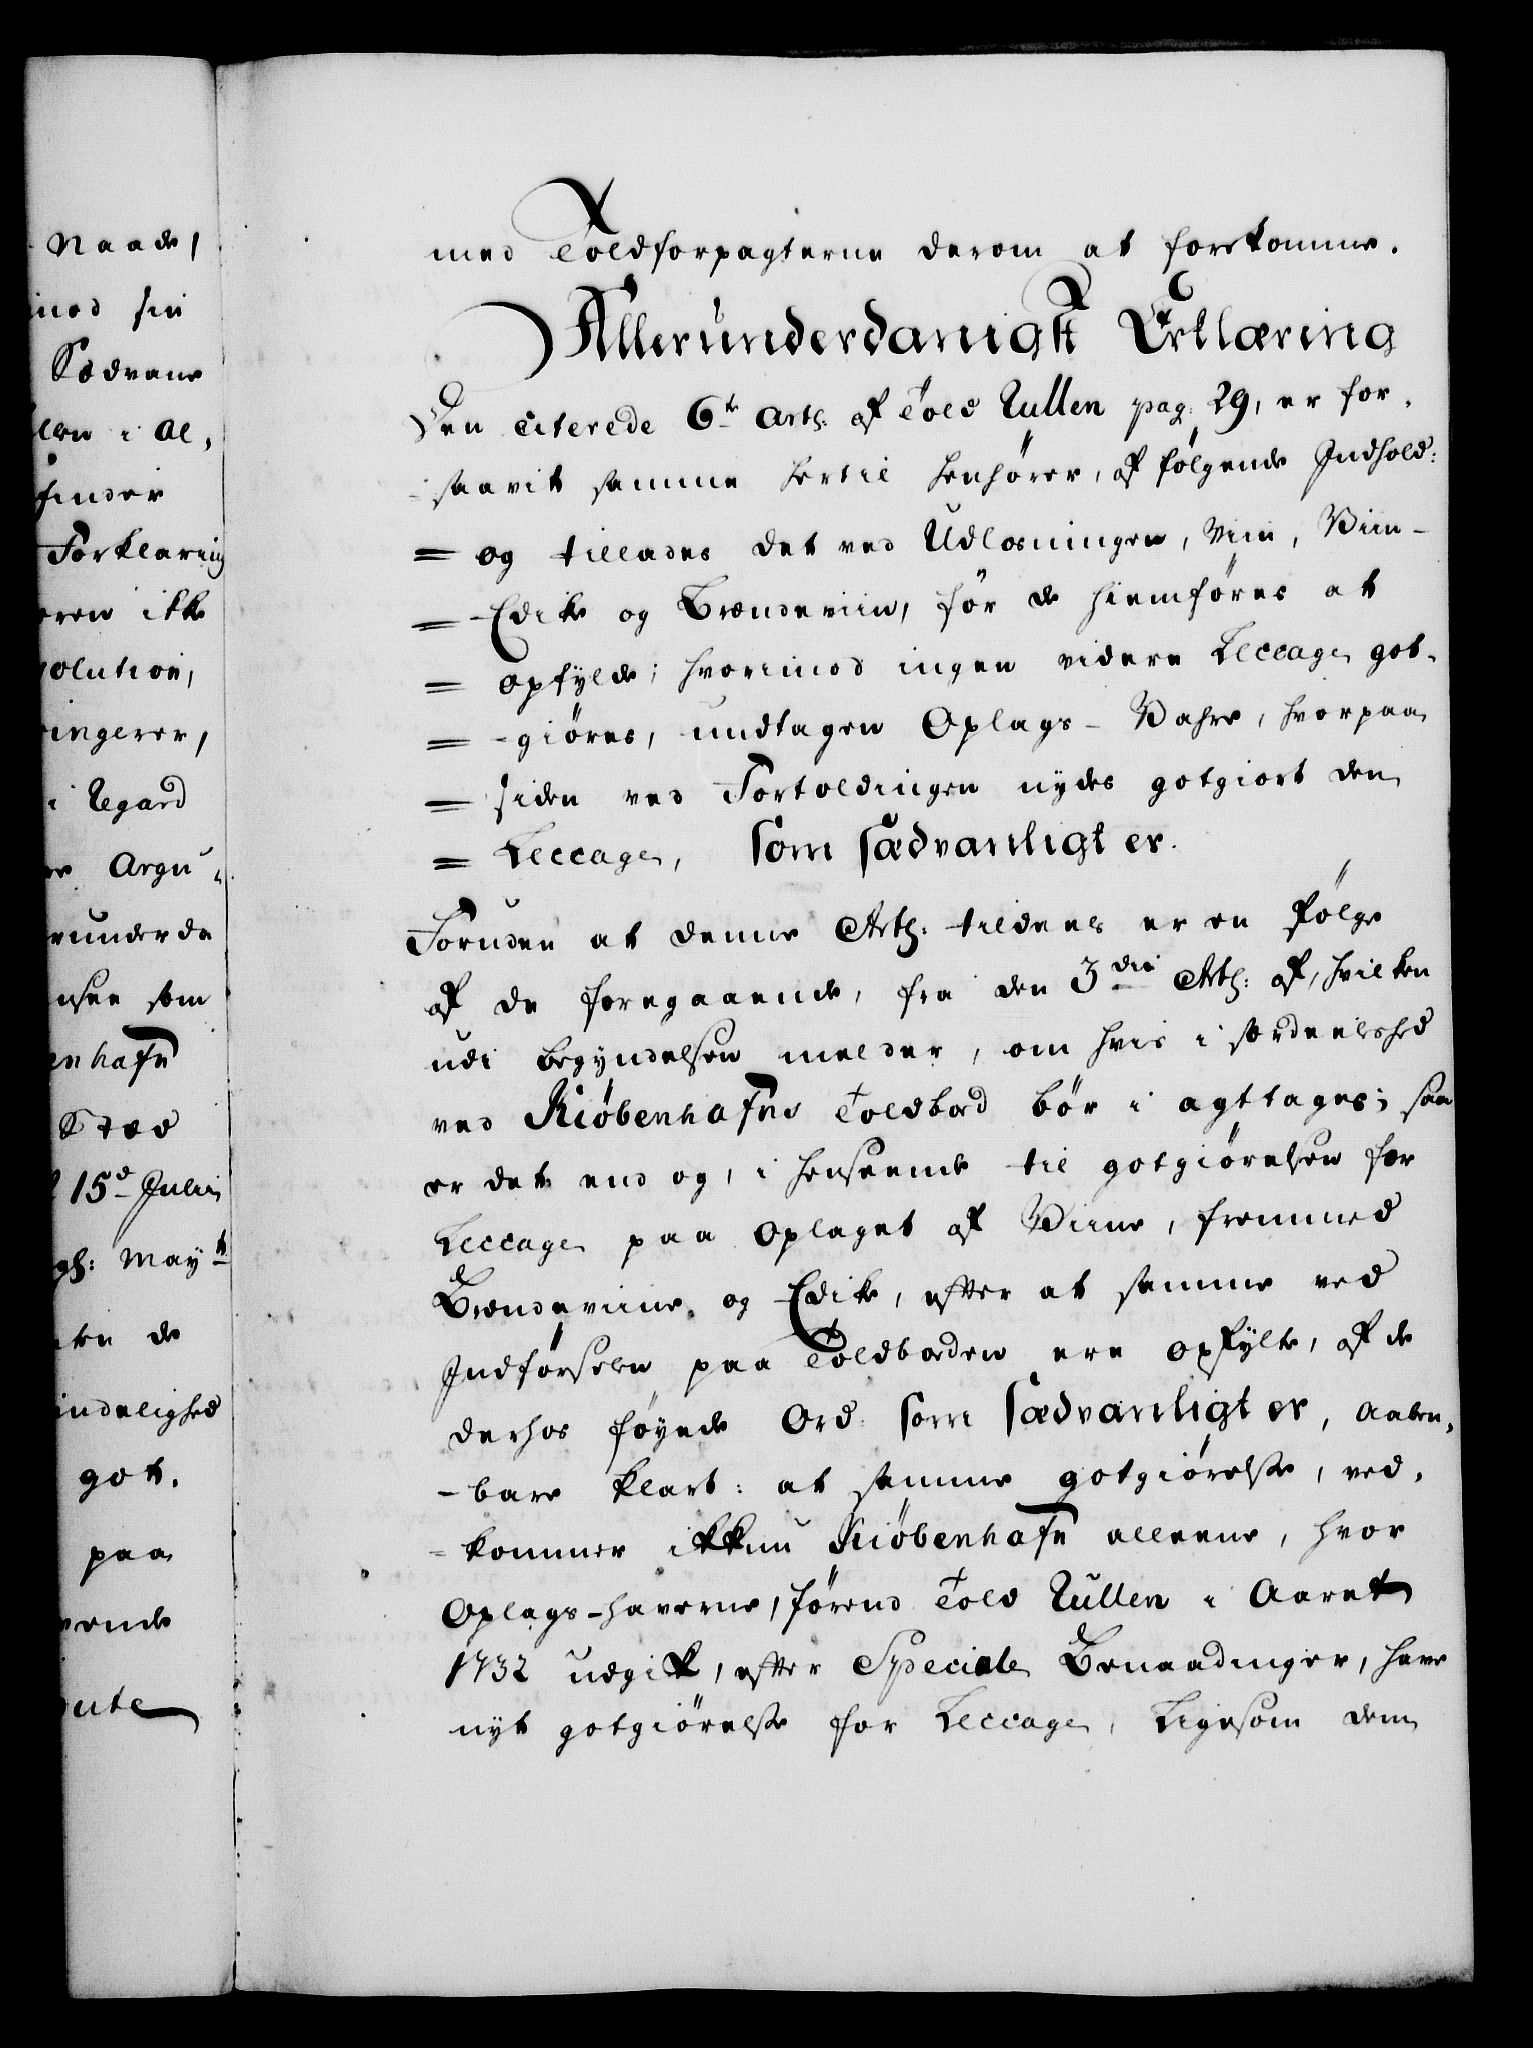 Naade,
imod sin
Sædvane
llen i Al,
finder
Forklaring
eren ikke
solution,
ringerer,
i Regard
re Argu,,
runderda
nsee som
enhafn
Sted
l 15d Julii
gst: Mayt
ten de
indelighed
got,
paa
vende
oute
med Toldforpagterne derom at forekomme.
Allerunderdanigst Erklæring
Den citerede 6te Artl: af Told Rullen pag: 29, er for,
-saavit samme hertil henhører, af følgende Indhold:
= og tillades det ved Udlosningen, Viin, Viin-
= Edike og Brændeviin, før de hiemføres at
= opfylde; hvorimod ingen videre Leccage got-
= -giøres, undtagen Oplags-Vahre, hvorpaa
= siden ved Fortoldingen nydes gotgiort den
= Leccage, som sædvanligt er.
Foruden at denne Artl: tildeels er en følge
af de foregaaende, fra den 3die Artl: af, hvilken
udi begyndelsen melder, om hvis i særdeelished
ved Kiøbenhafns Toldbod bør i agttages; saa
er det end og, i henseende til gotgiørelsen for
Leccage paa Oplaget af Viine, fremmed
Brændeviine, og Edike, efter at samme ved
Indførselen paa Toldboden ere opfylte, af de
derhos føyede Ord: som sædvanligt er, aaben,
-bare klart: at samme gotgiørelse, ved,
-kommer ikkun Kiøbenhafn alleene, hvor
Oplags-haverne, førend Told Rullen i Aaret
1732 udgik, efter Speciale Benaadinger, have
nyt gotgiørelse for Leccage, Ligesom dem